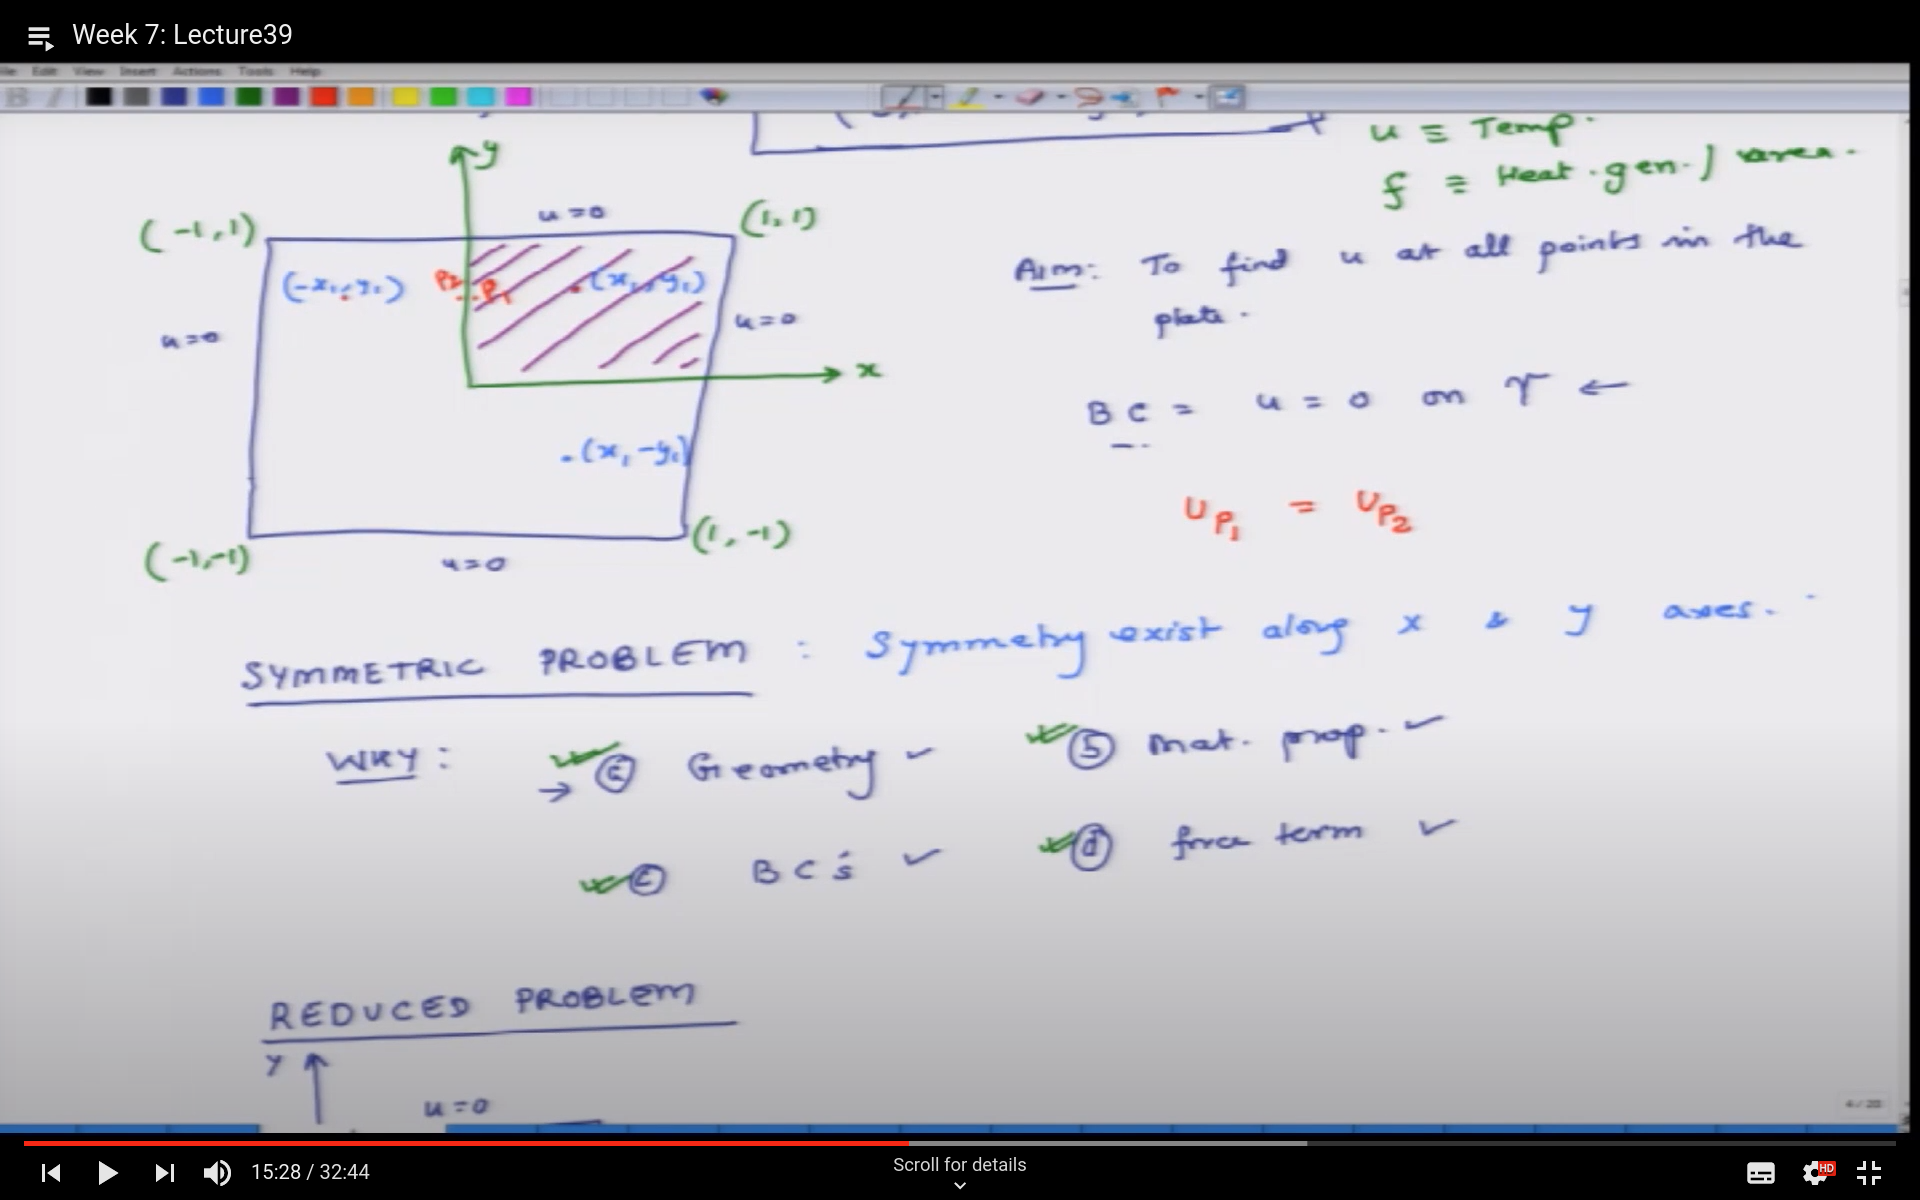 Week 7: Lecture39
File Edit View Insert Actions Tools Help
y
u ≡ Temp.
f ≡ Heat.gen./ area.
(-1,1)
u=0
(1,1)
(-x₁,y₁)
P₂
P₁
(x₁,y₁)
Aim: To find u at all points in the
plate.
u=0
u=0
x
BC = u = 0 on Γ ←
.(x₁-y₁)
U P₁ = U P₂
(-1,-1)
u=0
(1,-1)
SYMMETRIC PROBLEM : Symmetry exist along x & y axes.
WHY: → a Geometry ✓ b mat. prop. ✓
c BC's ✓ d force term ✓
REDUCED PROBLEM
Y
u=0
4/20
15:28 / 32:44
Scroll for details
HD